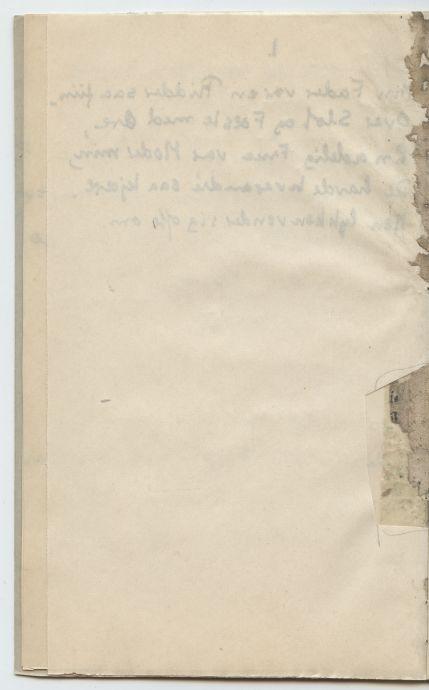 1
Min Fader var en Ridder saa fiin,
Over Slot og Fæste med Ære,
En adelig Frue var Moder min,
De havde hverandre saa kjære.
Men lykken vender sig ofte om